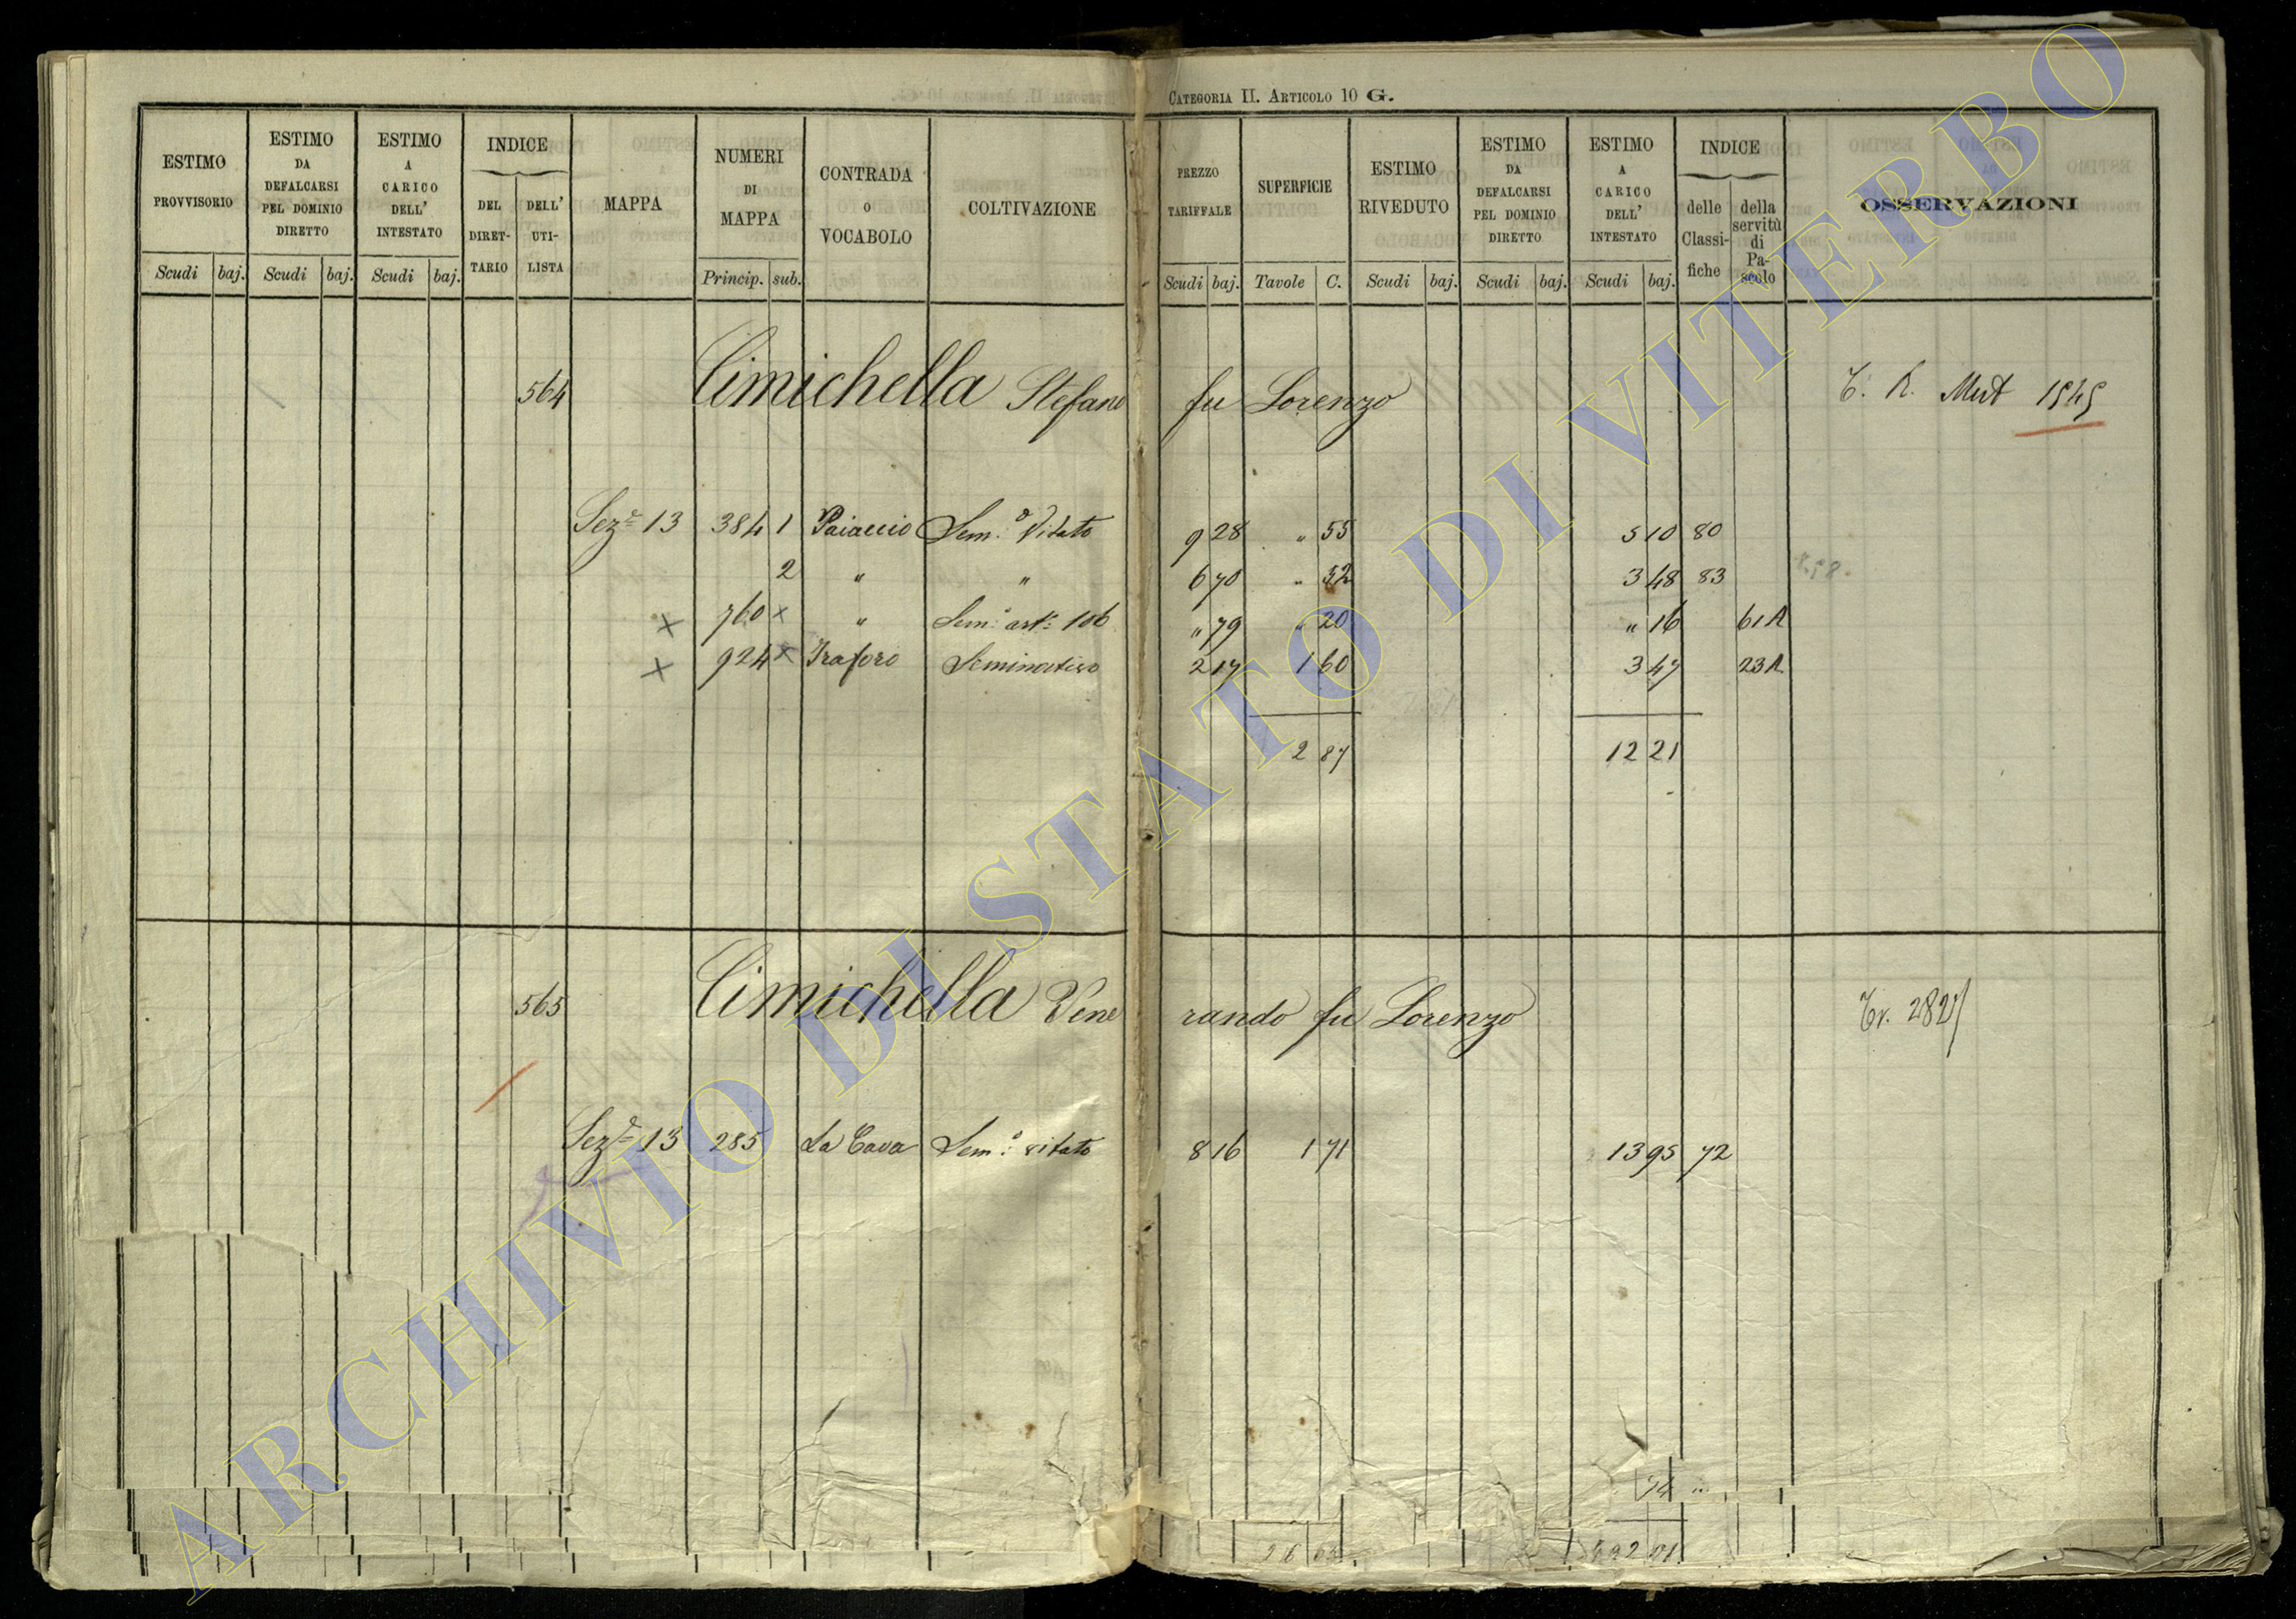 CATEGORIA II. ARTICOLO 10 G.
ESTIMO PROVVISORIO
Scudi baj.
ESTIMO DA DEFALCARSI PEL DOMINIO DIRETTO
Scudi baj.
ESTIMO A CARICO DELL' INTESTATO
Scudi baj.
INDICE
DEL DIRET-TARIO
DELL' UTI-LISTA
MAPPA
NUMERI DI MAPPA
Princip. sub.
CONTRADA O VOCABOLO
COLTIVAZIONE
PREZZO TARIFFALE
Scudi baj.
SUPERFICIE
Tavole C.
ESTIMO RIVEDUTO
Scudi baj.
ESTIMO DA DEFALCARSI PEL DOMINIO DIRETTO
Scudi baj.
ESTIMO A CARICO DELL' INTESTATO
Scudi baj.
INDICE
delle Classi-fiche
della servitù di Pa-scolo
OSSERVAZIONI
564 Cimichella Stefano fu Lorenzo
Sez.e 13 384 1 Paiaccio Sem.o Vitato 9 28 " 55 5 10 80
2 " " 6 70 " 52 3 48 83
x 760 x " Sem.o art.e 106 " 79 " 20 " 16 61A
x 924 x Traforo Seminativo 2 17 1 60 3 47 23A
2 87 12 21
565 Cimichella Venerando fu Lorenzo
Sez.e 13 285 La Cava Sem.o vitato 8 16 1 71 13 95 72
ARCHIVIO DI STATO DI VITERBO